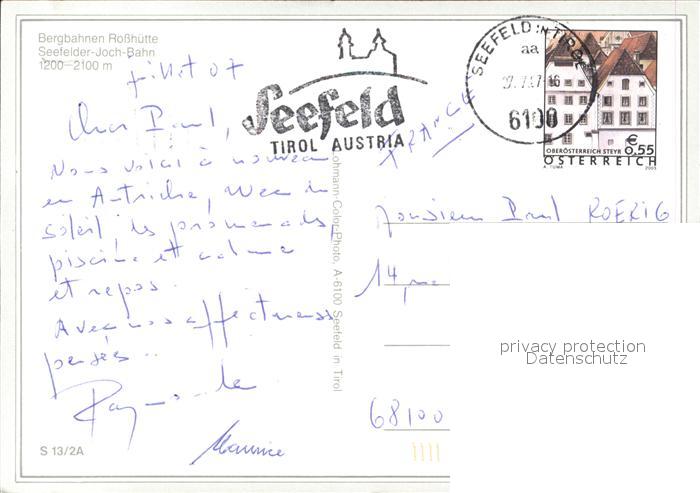 Bergbahnen Roßhütte
Seefelder-Joch-Bahn
1200–2100 m
juillet 07
Cher Paul,
Nous voici à nouveau
en Autriche, avec du
soleil des promenades,
piscine et calme
et repos.
Avec nos affectueuses
pensées..
Raymonde
Maurice
S 13/2A
Seefeld
TIROL AUSTRIA
SEEFELD IN TIROL
aa
6100
€ 0,55
OBERÖSTERREICH STEYR
ÖSTERREICH
A. TUMA 2003
FRANCE
Lohmann-Color-Photo, A-6100 Seefeld in Tirol
Monsieur Paul ROERIG
14, rue
68100
privacy protection
Datenschutz